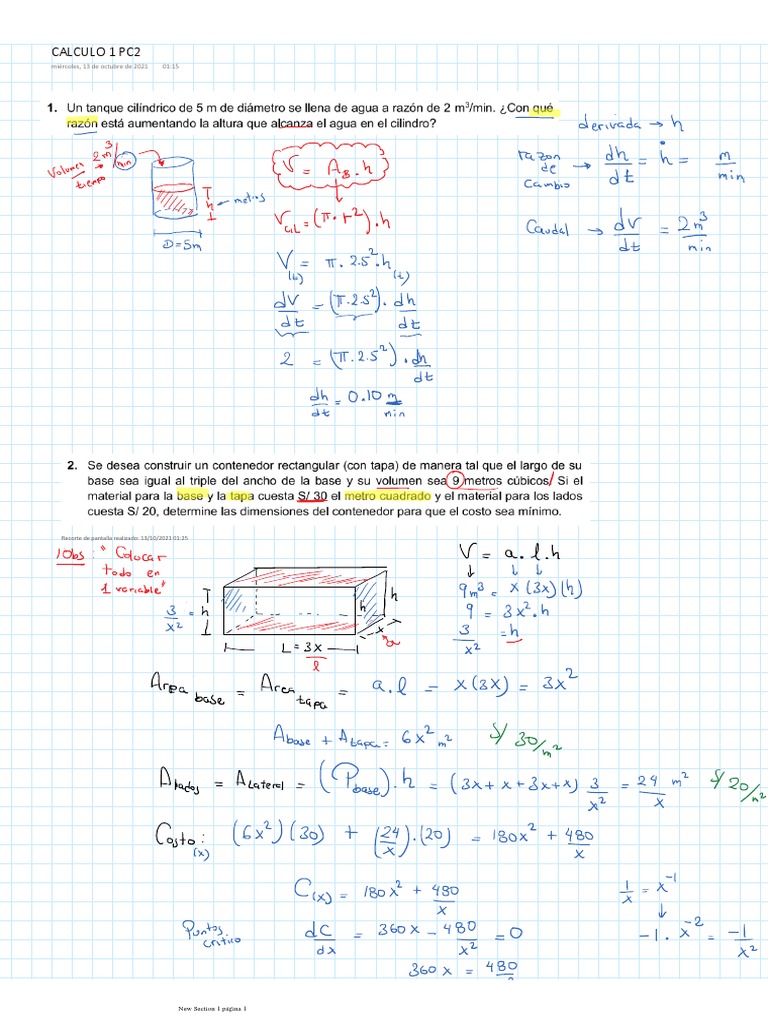 CALCULO 1 PC2
miércoles, 13 de octubre de 2021 01:15
1. Un tanque cilíndrico de 5 m de diámetro se llena de agua a razón de 2 m³/min. ¿Con qué
razón está aumentando la altura que alcanza el agua en el cilindro?
derivada → h
Volumen
tiempo
→ 2 m³/min
h ← metros
D = 5m
V = A_B . h
V_CIL = (π . r²) . h
razon de cambio → dh/dt = ḣ = m/min
Caudal → dV/dt = 2 m³/min
V(t) = π . 2.5² . h(t)
dV/dt = (π . 2.5²) . dh/dt
2 = (π . 2.5²) . dh/dt
dh/dt = 0.10 m/min
2. Se desea construir un contenedor rectangular (con tapa) de manera tal que el largo de su
base sea igual al triple del ancho de la base y su volumen sea 9 metros cúbicos/ Si el
material para la base y la tapa cuesta S/ 30 el metro cuadrado y el material para los lados
cuesta S/ 20, determine las dimensiones del contenedor para que el costo sea mínimo.
Recorte de pantalla realizado: 13/10/2021 01:25
1Obs: "Colocar
todo en
1 variable"
3/x² = h
h
h
x
a
L = 3x
l
V = a . l . h
9 m³ = x (3x) (h)
9 = 3x² . h
3/x² = h
Area base = Area tapa = a . l = x(3x) = 3x²
A base + A tapa = 6x² m² S/ 30/m²
A lados = A Lateral = (P base) . h = (3x + x + 3x + x) 3/x² = 24/x m² S/ 20/m²
Costo(x): (6x²)(30) + (24/x) . (20) = 180x² + 480/x
C(x) = 180x² + 480/x
1/x = x⁻¹
↓
Puntos critico
dC/dx = 360x - 480/x² = 0
-1 . x⁻² = -1/x²
360x = 480
New Section 1 página 1